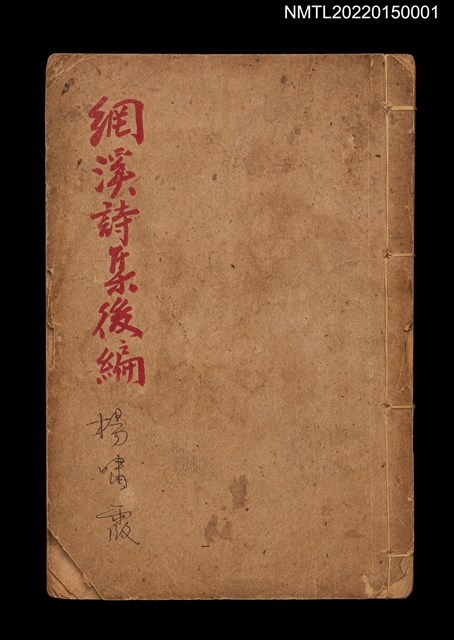 NMTL20220150001
網溪詩集後編
楊嘯霞